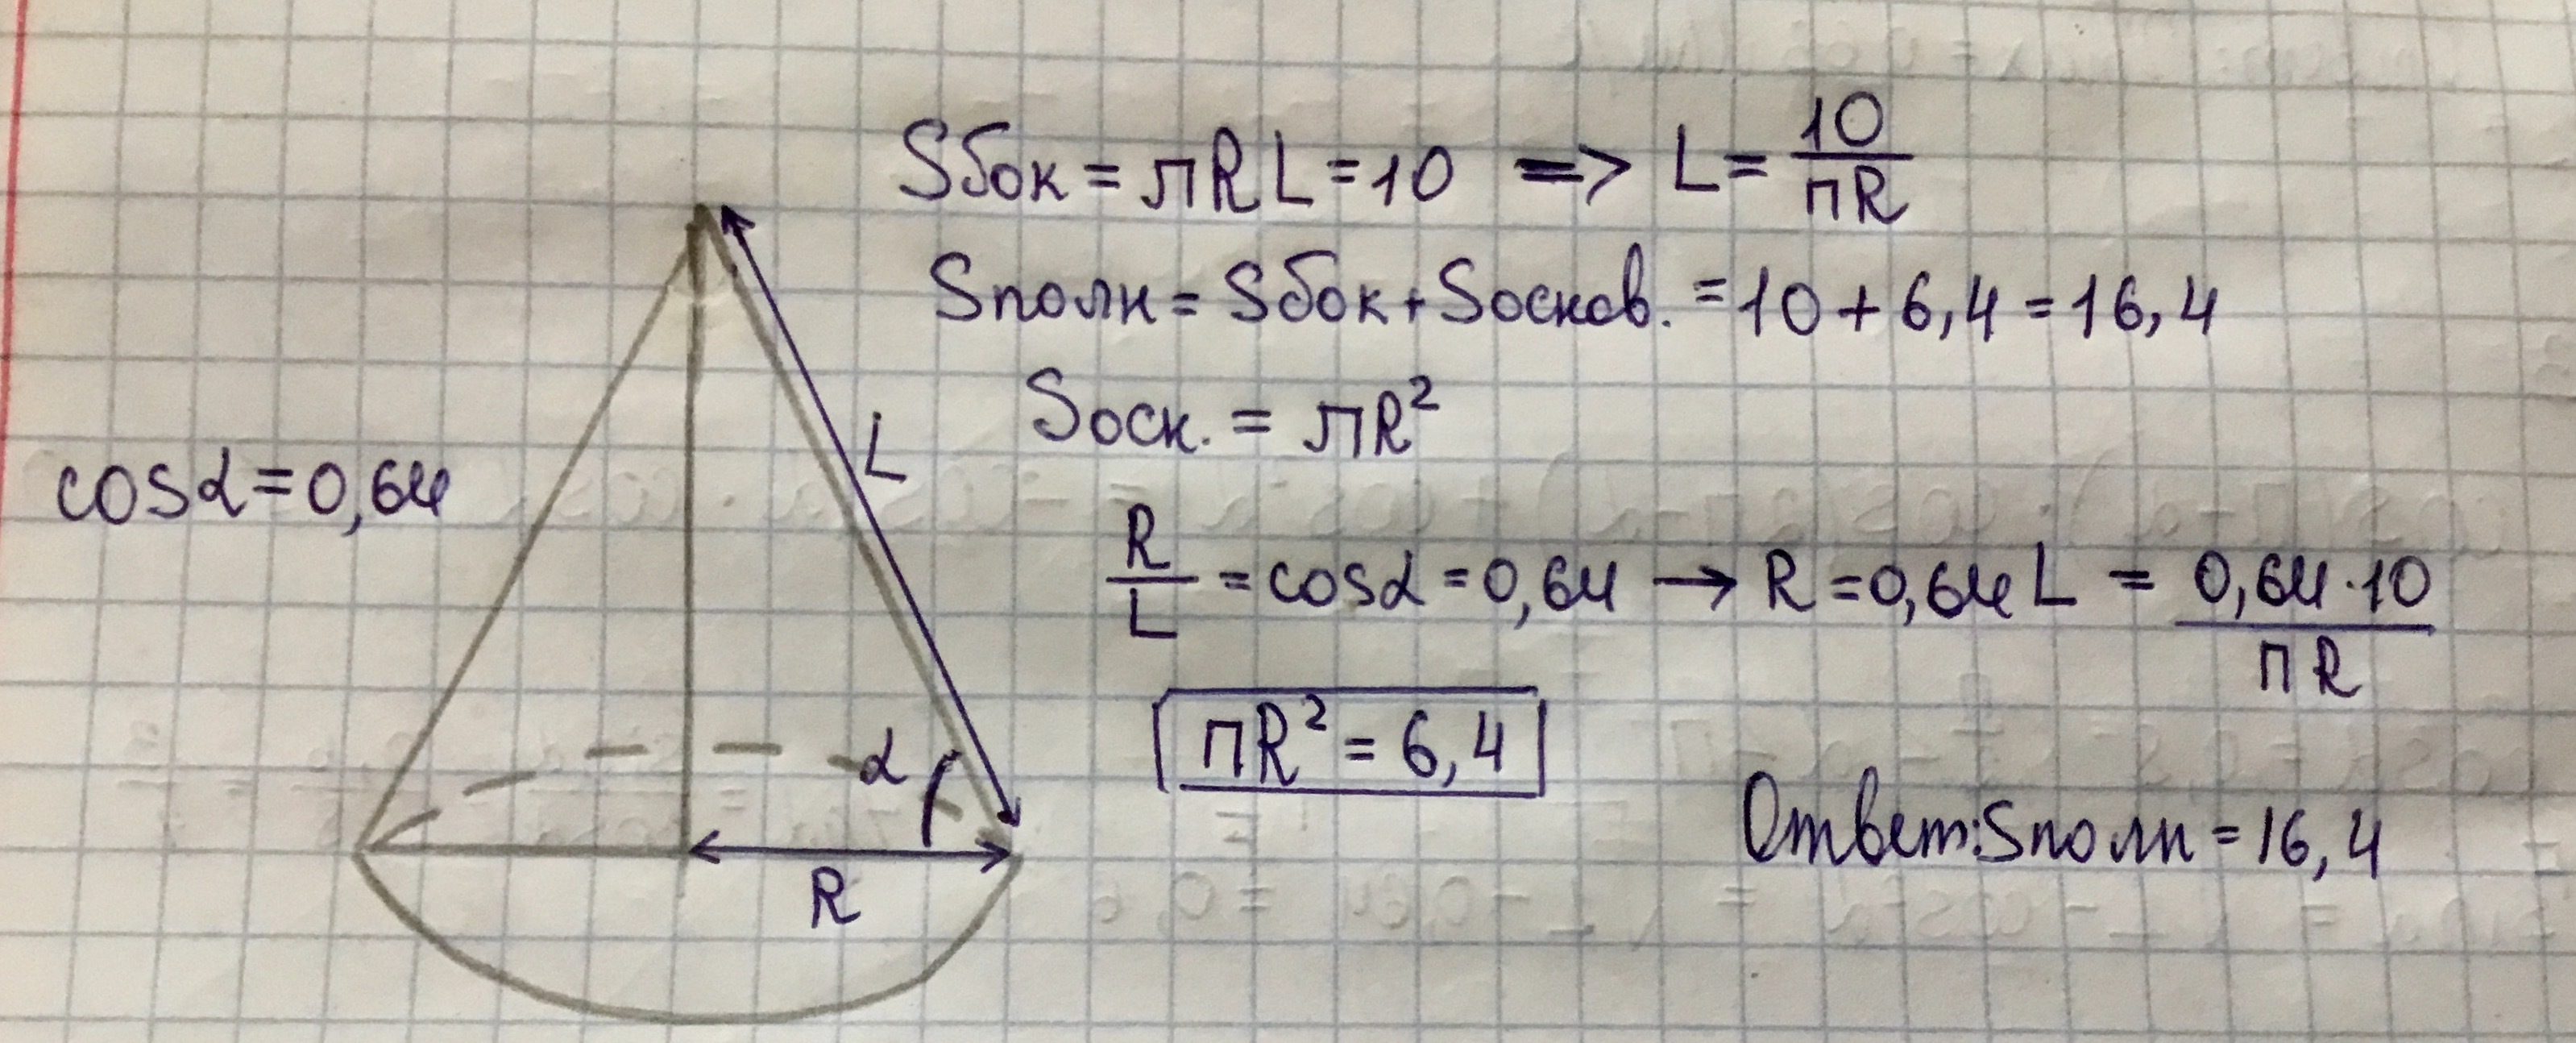 Sбок = πRL = 10 => L = 10/πR
Sполн = Sбок + Sоснов. = 10 + 6,4 = 16,4
Sосн. = πR²
cosα = 0,64
L
R/L = cosα = 0,64 → R = 0,64 L = 0,64·10/πR
πR² = 6,4
α
R
Ответ: Sполн = 16,4